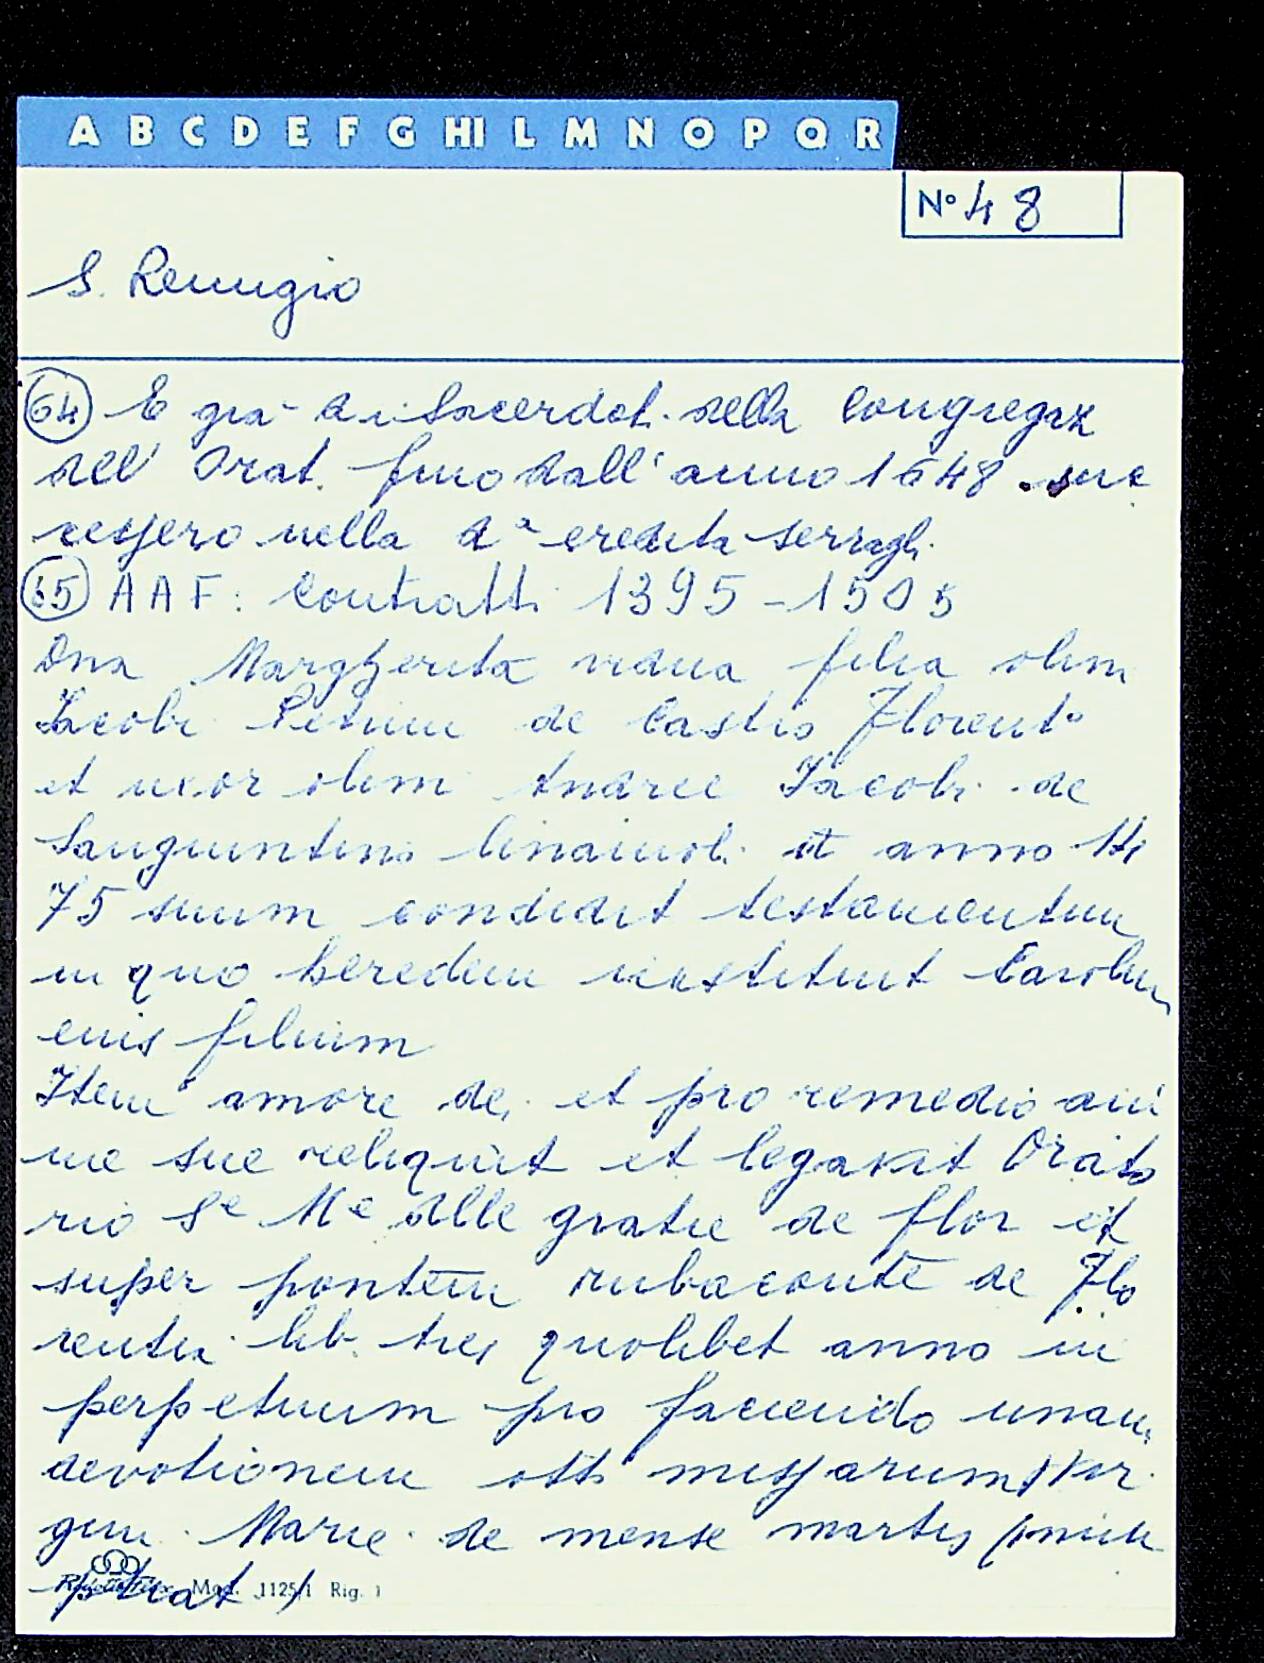 A B C D E F G HI L M N O P Q R
N° 48
S. Remigio
(64) E già d. i Sacerdoti della Congregaz
dell' Orat. fino dall' anno 1648 suc
cessero nella d.ª eredità Serragli.
(65) AAF: Contratti 1395-1505
Dna Margherita vidua filia olim
Iacobi Petrini de Castro Florent°
et uxor olim Andree Iacobi de
Sanguintino linaiuoli et anno 14
75 suum condidit testamentum
in quo heredem instituit Carolum
eius filium
Item amore dei et pro remedio ani
me sue reliquit et legavit Orato
rio Se Me delle gratie de flor et
super pontem rubaconte de Flo
rentia lib. tres quolibet anno in
perpetuum pro faciendo unam
devotionem otto missarum Vir
gini Marie de mense martis (
Mod. 1125/1 Rig. 1